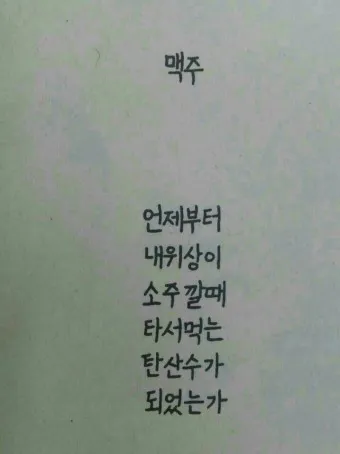 맥주
언제부터
내위상이
소주 깔때
타서먹는
탄산수가
되었는가